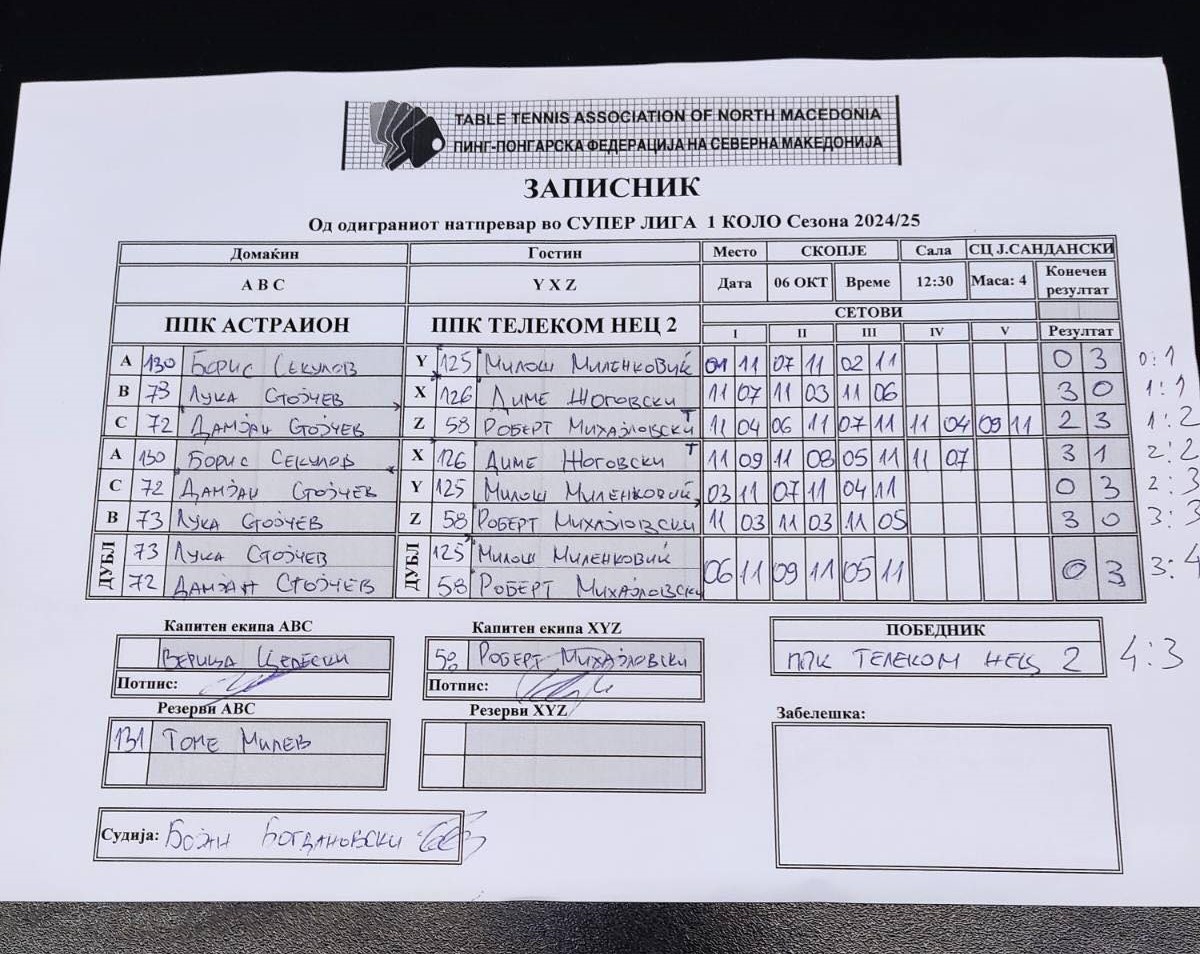 TABLE TENNIS ASSOCIATION OF NORTH MACEDONIA
ПИНГ-ПОНГАРСКА ФЕДЕРАЦИЈА НА СЕВЕРНА МАКЕДОНИЈА
ЗАПИСНИК
Од одиграниот натпревар во СУПЕР ЛИГА 1 КОЛО Сезона 2024/25
Домаќин Гостин Место СКОПЈЕ Сала СЦ Ј.САНДАНСКИ
A B C Y X Z Дата 06 ОКТ Време 12:30 Маса: 4 Конечен резултат
ППК АСТРАИОН ППК ТЕЛЕКОМ НЕЦ 2 СЕТОВИ
I II III IV V Резултат
A 130 Борис Секулов Y 125 Милош Миленковиќ 01 11 07 11 02 11 0 3 0:1
B 73 Лука Стојчев X 126 Диме Жоговски 11 07 11 03 11 06 3 0 1:1
C 72 Дамјан Стојчев Z 58 Роберт Михајловски Т 11 04 06 11 07 11 11 04 09 11 2 3 1:2
A 130 Борис Секулов X 126 Диме Жоговски Т 11 09 11 08 05 11 11 07 3 1 2:2
C 72 Дамјан Стојчев Y 125 Милош Миленковиќ 03 11 07 11 04 11 0 3 2:3
B 73 Лука Стојчев Z 58 Роберт Михајловски 11 03 11 03 11 05 3 0 3:3
ДУБЛ 73 Лука Стојчев ДУБЛ 125 Милош Миленковиќ 06 11 09 11 05 11 0 3 3:4
72 Дамјан Стојчев 58 Роберт Михајловски
Капитен екипа ABC Капитен екипа XYZ ПОБЕДНИК
Верица Целески 58 Роберт Михајловски ППК ТЕЛЕКОМ НЕЦ 2 4:3
Потпис: Потпис:
Резерви ABC Резерви XYZ Забелешка:
131 Томе Милев
Судија: Бојан Богдановски